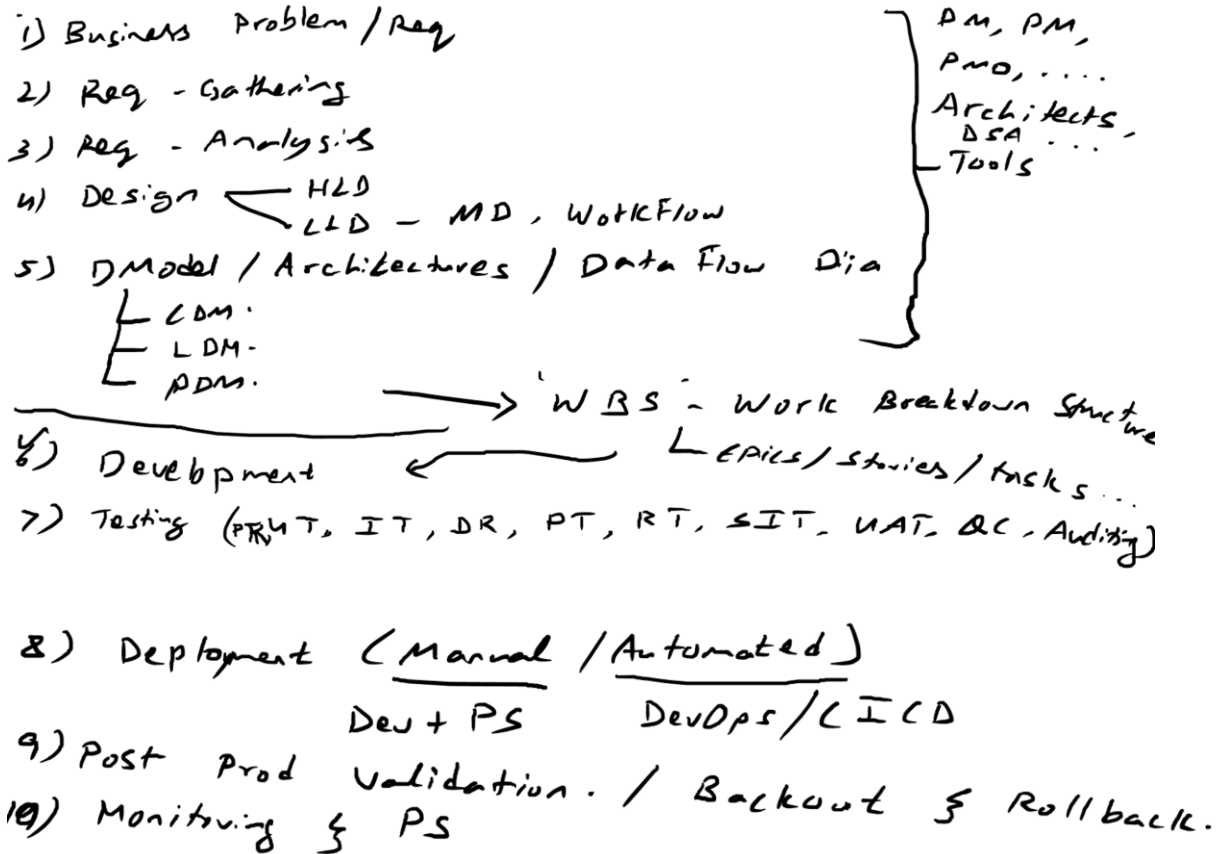 1) Business Problem / Req
2) Req - Gathering
3) Req - Analysis
4) Design
HLD
LLD - MD, WorkFlow
5) DModel / Architectures / Data Flow Dia
CDM.
LDM-
PDM.
DM, PM,
PMO, ....
Architects,
DSA ...
Tools
"WBS" - Work Breakdown Structure
Epics / Stories / tasks...
6) Development
7) Testing (UT, IT, DR, PT, RT, SIT, UAT, QC, Auditing)
8) Deployment (Manual / Automated)
Dev + PS DevOps / CICD
9) Post Prod Validation. / Backout & Rollback.
10) Monitoring & PS